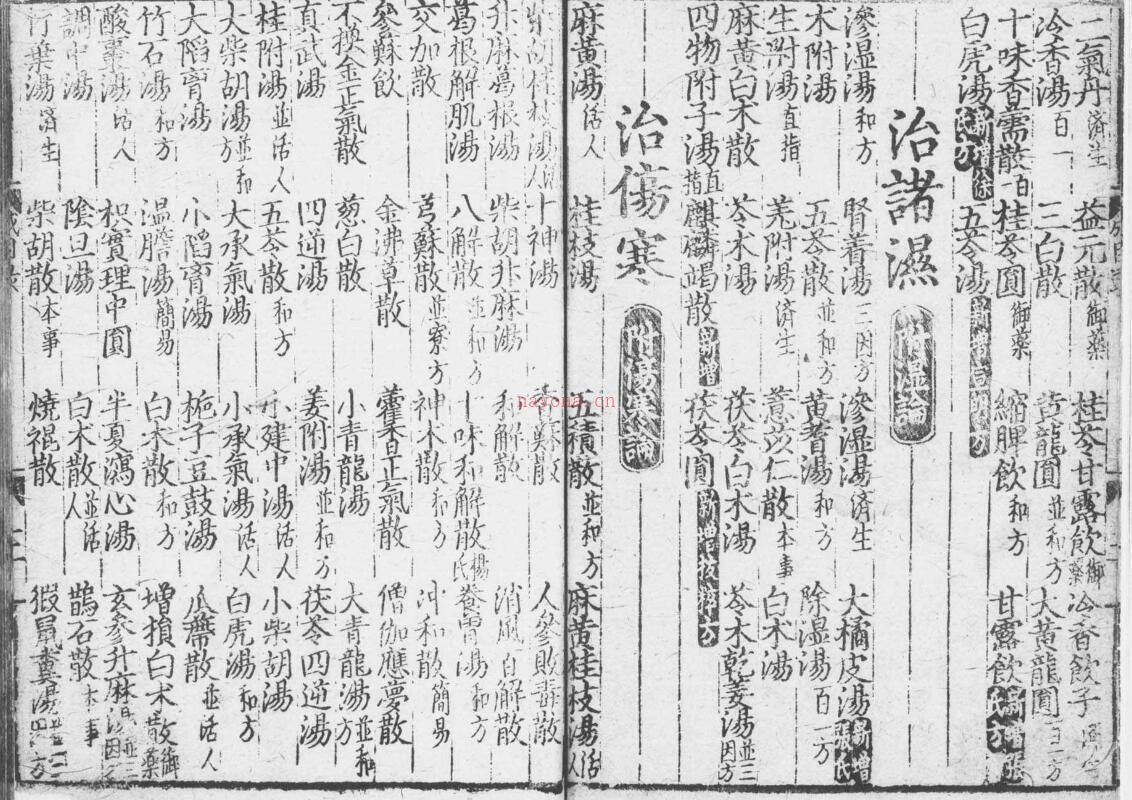 二氣丹濟生 益元散御藥 桂苓甘露飲御藥 冷香飲子
冷香湯百一 三白散 黃龍圓並和方 大黃龍圓百一方
十味香薷散百一 桂苓圓御藥 縮脾飲和方 甘露飲新增張氏方
白虎湯新增徐氏方 五苓湯
治諸濕 附濕論
滲湿湯和方 腎着湯三因方 滲湿湯濟生 大橘皮湯新增張氏
木附湯 五苓散並和方 黃耆湯和方 除湿湯百一方
生附湯直指 羌附湯濟生 薏苡仁散本事 白术湯
麻黃白术散 苓术湯 茯苓白术湯 苓术乾姜湯並三因方
四物附子湯直指 麒麟竭散新增 茯苓圓新增拔粹方
治傷寒 附傷寒論
麻黃湯活人 桂枝湯 五積散並和方 麻黃桂枝湯活人
柴胡桂枝湯活人 十神湯 人參敗毒散
升麻葛根湯 柴胡升麻湯 和解散 消風百解散
葛根解肌湯 八解散並和方 十味和解散楊氏 湯和方
交加散 芎蘇散並寮方 神术散和方 冲和散簡易
參蘇飲 金沸草散 藿香正氣散 僧伽應夢散
不換金正氣散 葱白散 小青龍湯 大青龍湯並和方
真武湯 四逆湯 姜附湯並和方 茯苓四逆湯
桂附湯並活人 五苓散和方 小建中湯活人 小柴胡湯
大柴胡湯並和方 大承氣湯 小承氣湯活人 白虎湯和方
大陷胷湯 小陷胷湯 梔子豆鼓湯 瓜蔕散並活人
竹石湯和方 温膽湯簡易 白术散和方 增損白术散御藥
酸棗湯活人 枳實理中圓 半夏瀉心湯 玄參升麻湯
調中湯 陰旦湯 白术散並活人 鵲石散本事
竹葉湯濟生 柴胡散本事 燒裩散 猳鼠糞湯
nayona.cn